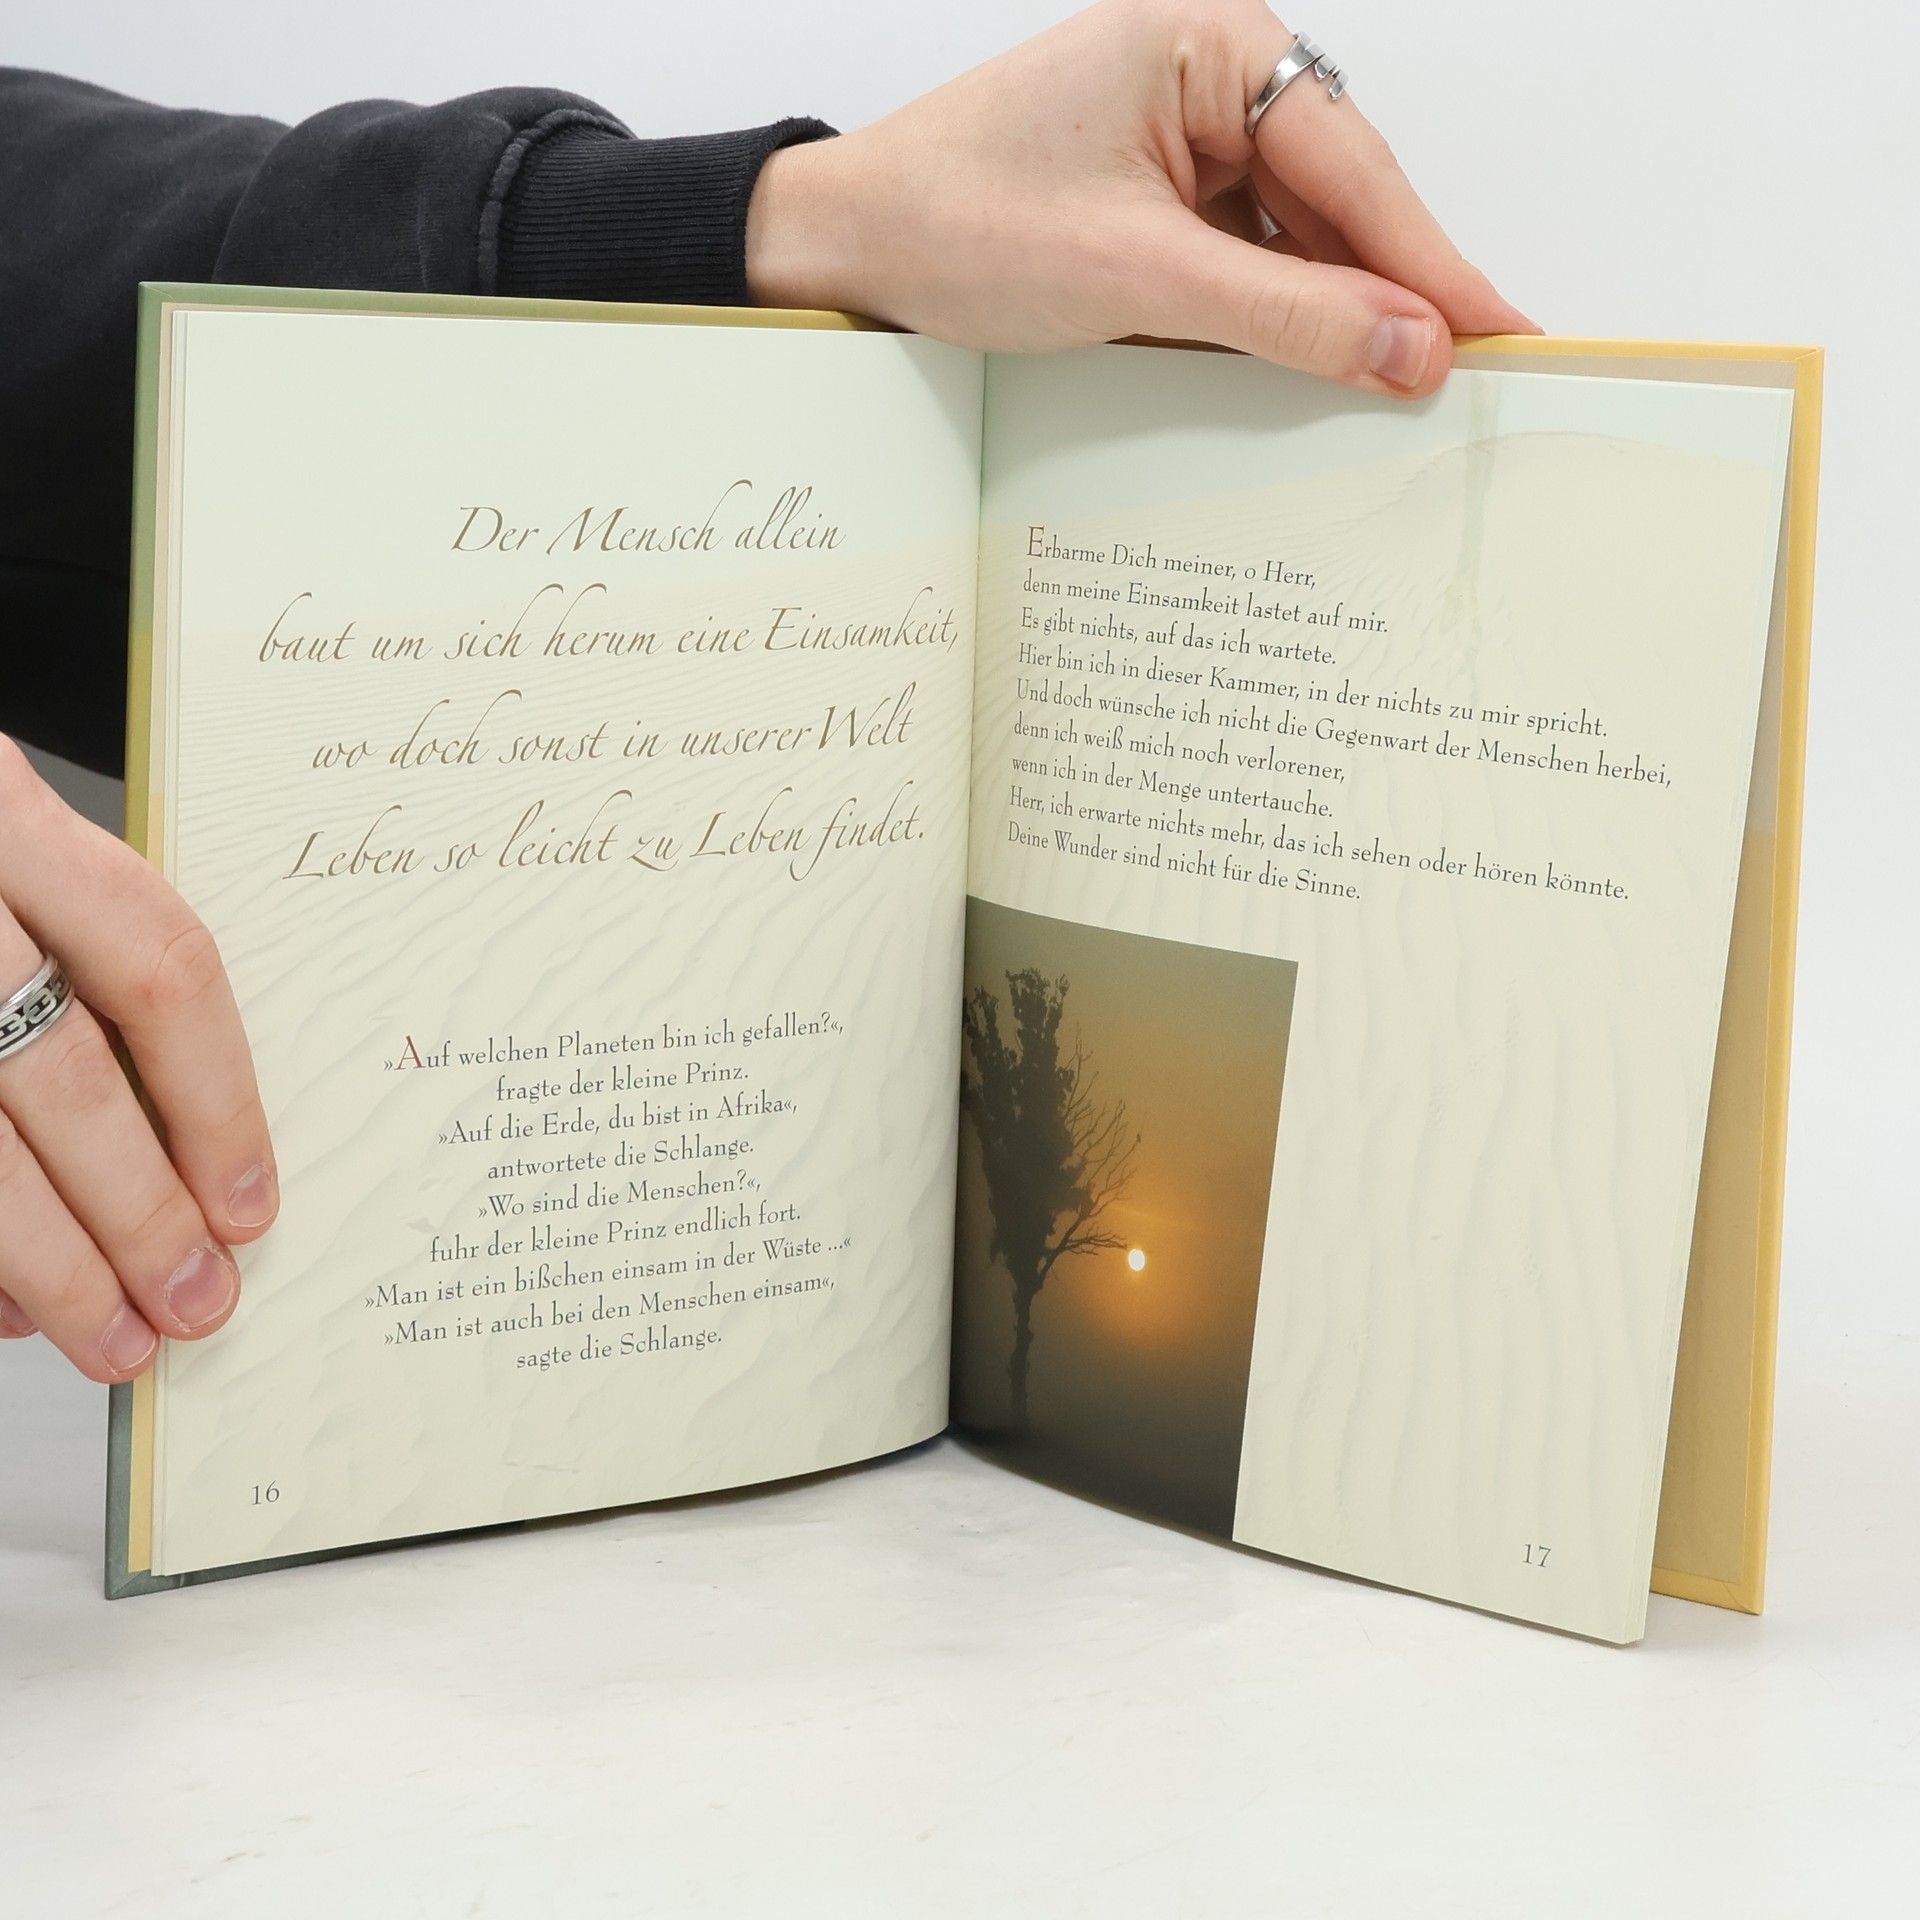 Der Mensch allein
baut um sich herum eine Einsamkeit,
wo doch sonst in unserer Welt
Leben so leicht zu Leben findet.
»Auf welchen Planeten bin ich gefallen?«,
fragte der kleine Prinz.
»Auf die Erde, du bist in Afrika«,
antwortete die Schlange.
»Wo sind die Menschen?«,
fuhr der kleine Prinz endlich fort.
»Man ist ein bißchen einsam in der Wüste ...«
»Man ist auch bei den Menschen einsam«,
sagte die Schlange.
16
Erbarme Dich meiner, o Herr,
denn meine Einsamkeit lastet auf mir.
Es gibt nichts, auf das ich wartete.
Hier bin ich in dieser Kammer, in der nichts zu mir spricht.
Und doch wünsche ich nicht die Gegenwart der Menschen herbei,
denn ich weiß mich noch verlorener,
wenn ich in der Menge untertauche.
Herr, ich erwarte nichts mehr, das ich sehen oder hören könnte.
Deine Wunder sind nicht für die Sinne.
17